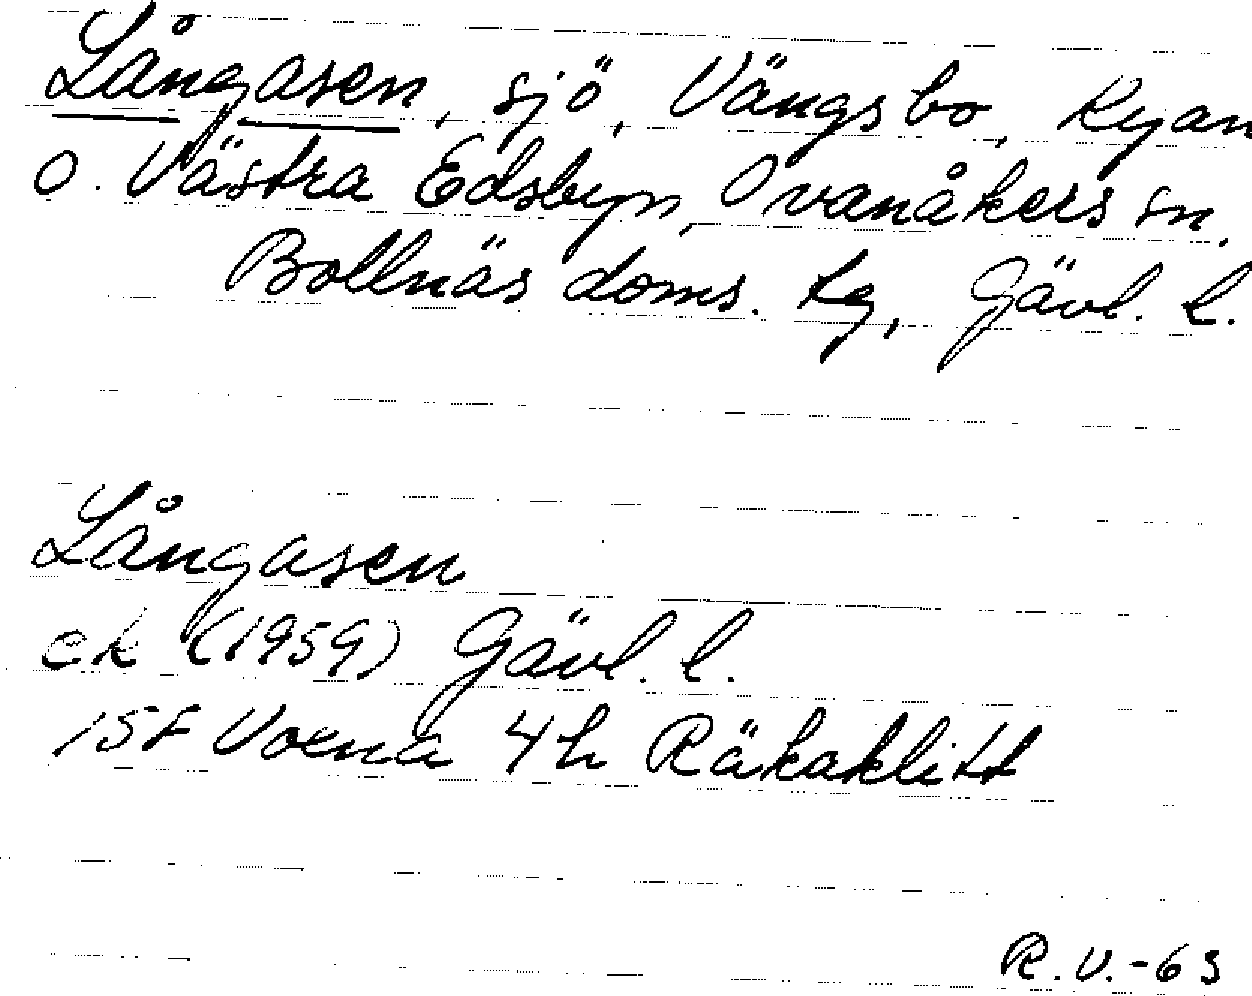 Långasen, sjö, Vängsbo, Ryan
o. Västra Edsbyn, Ovanåkers sn.
Bollnäs doms. tg, Gävl. l.
Långasen
ek (1959) Gävl. l.
15F Voxna 4h Räkaklitt
R.V.-63